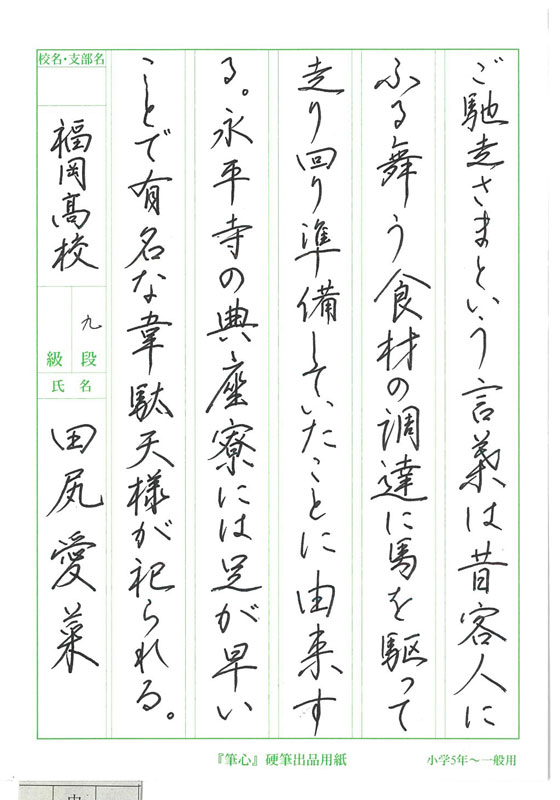 ご馳走さまという言葉は昔客人に
ふる舞う食材の調達に馬を駆って
走り回り準備していたことに由来す
る。永平寺の典座寮には足が早い
ことで有名な韋駄天様が祀られる。
校名・支部名
福岡高校
九
段
級
氏名
田尻愛菜
『筆心』硬筆出品用紙
小学5年〜一般用